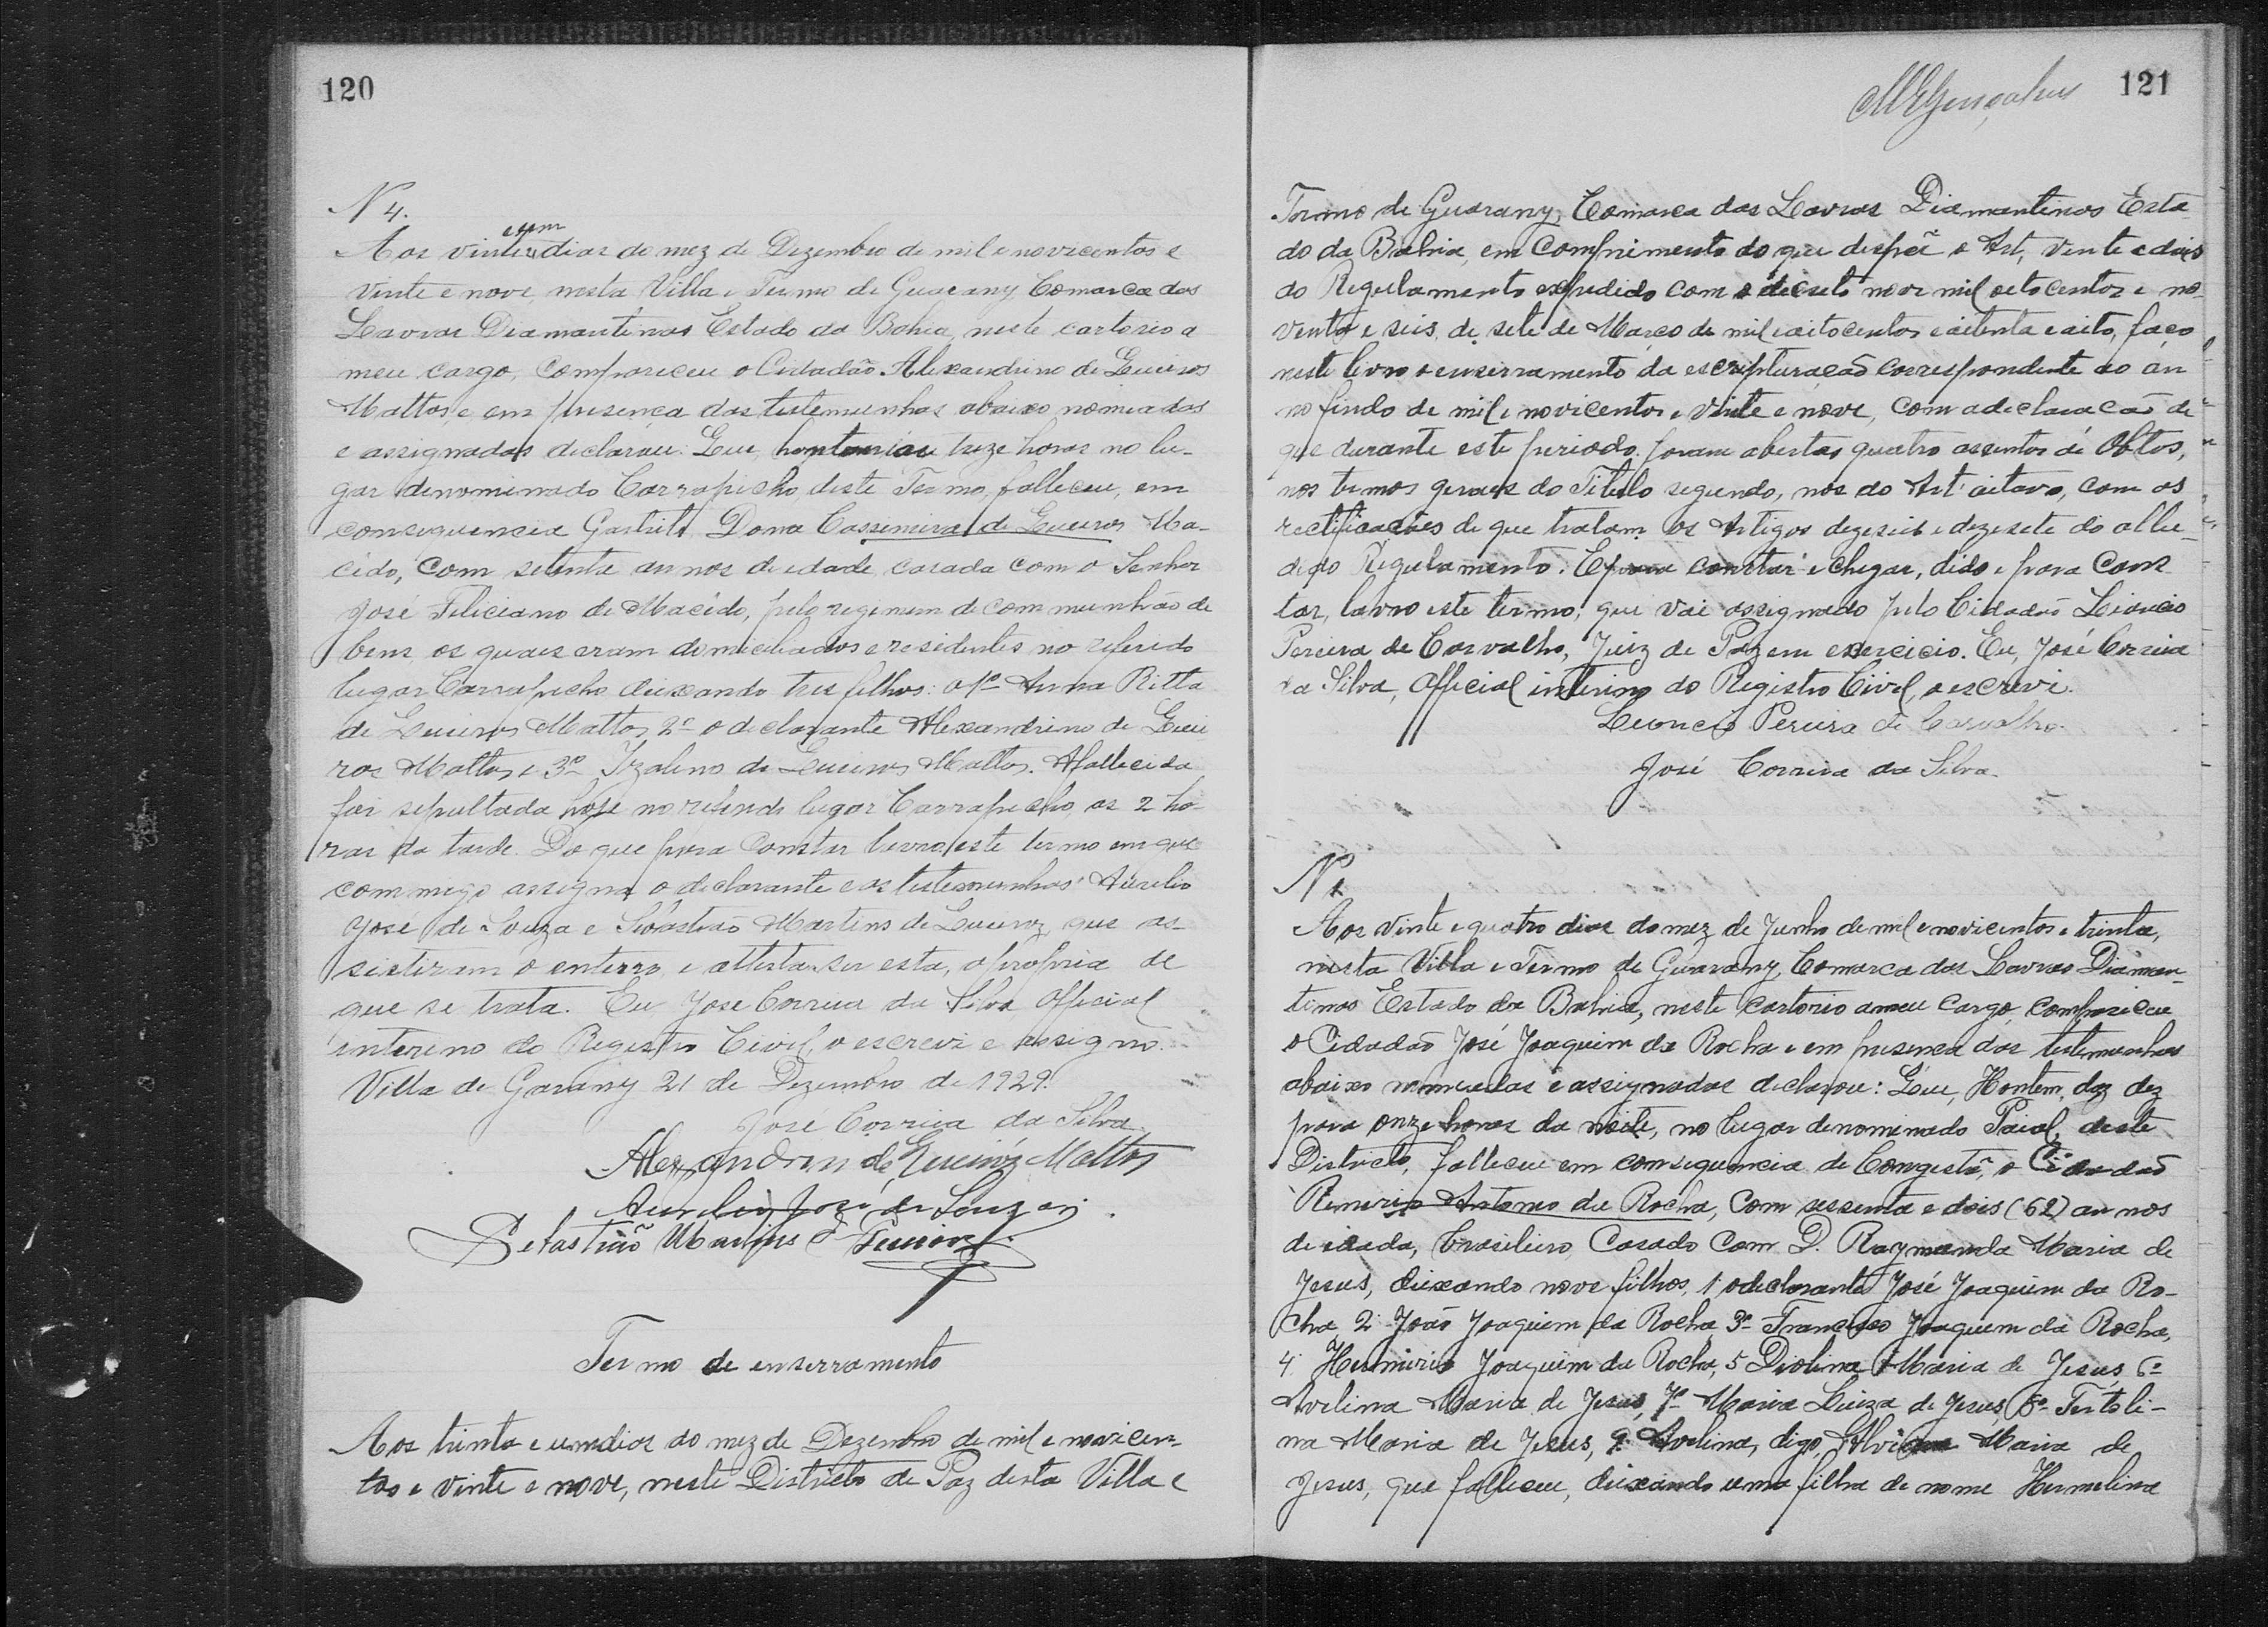 120
N 4.
e um
Aos vinte dias do mez de Dezembro de mil e novicentos e
vinte e nove, nesta Villa e Termo de Guarany, Comarca das
Lavras Diamantinas Estado da Bahia, neste cartorio a
meu cargo, compareceu o Cidadão Alexandrino de Queiros
Mattos, e em presença das testemunhas abaixo nomeadas
e assignadas declarou: Que, hontem treze horas no lu-
gar denominado Carrapicho, deste Termo, falleceu, em
consequencia Gastrite Dona Cassimira de Queiros Ma-
cêdo, com setenta annos de edade, casada com o Senhor
José Feliciano de Macêdo, pelo regimem de communhão de
bens, os quaes eram domiciliados e residentes no referido
lugar Carrapicho deixando tres filhos: o 1º Anna Ritta
de Queiros Mattos, 2º o declarante Alexandrino de Quei
ros Mattos e 3º Izalino de Queiros Mattos. A fallecida
foi sepultada hoje no refirido lugar Carrapicho, as 2 ho-
ras da tarde. Do que para constar lavro este termo em que
commigo assigna o declarante e as testemunhas Aurelio
José de Souza e Sebastião Martins de Queiroz que as-
sistiram o enterro e attesta ser esta, a propria de
que se trata. Eu José Correia da Silva Official
interino do Registro Civil, o escrevi e assigno.
Villa de Garany 21 de Dezembro de 1929.
José Correia da Silva
Alexandrino de Queiróz Mattos
Aurelio José de Souza
Sebastião Martins d
Termo de enserramento
Aos trinta e um dias do mez de Dezembro de mil e novicen-
tos e vinte e nove, neste Districto de Paz desta Villa e
121
MEGonçalves
Termo de Guarany, Comarca das Lavras Diamantinas Esta
do da Bahia, em comprimento do que dispõe o Art, vinte e dois
do Regulamento expedido com o decreto nove mil oitocentos e no-
venta e seis, de sete de Março de mil e oitocentos e oitenta e oito, faço
neste livro o enserramento da escripturação correspondente ao an
no findo de mil e novicentos e vinte e nove, com a declaração de
que durante este periodo foram abertas quatro assentos de Obtos,
nos termos geraes do Titulo segundo, nos do Art. oitavo, com as
rectificações de que tratam os Artigos dezeseis e dezesete do allu-
digo Regulamento. E para constar e chegar, dido e para Cons
tar, lavro este termo, que vai assignado pelo Cidadão Lioncio
Pereira de Carvalho, Juiz de Paz em exercicio. Eu, José Correia
da Silva, Official interino do Registro Civil, o escrevi.
Leoncio Pereira de Carvalho.
José Correia da Silva.
N 1
Aos vinte e quatro dias do mez de Junho de mil e novicentos e trinta,
nesta Villa e Termo de Guarany, Comarca das Lavras Diaman-
tinas Estado da Bahia, neste cartorio a meu cargo, compareceu
o Cidadão José Joaquim da Rocha e em presença das testemunhas
abaixo nomeadas e assignadas declarou: Que, Hontem, das dez
para onze horas da noite, no lugar denominado Paiol, deste
Districto, falleceu em consequencia de Congestã, o Cidadão
Remerio Antonio da Rocha, com sessenta e dois (62) annos
de idada, brasileiro, Casado com D. Raymunda Maria de
Jesus, deixando nove filhos, 1 o declarante José Joaquim da Ro-
cha 2 João Joaquim da Rocha, 3º Francisco Joaquim da Rocha,
4 Hermirio Joaquim da Rocha, 5 Diolina Maria de Jesus, 6º
Avelina Maria de Jesus, 7º Maria Luiza de Jesus, 8º Tertoli-
na Maria de Jesus, 9. Avelina, digo, Maria de
Jesus, que falleceu, deixando uma filha de nome Hermelina